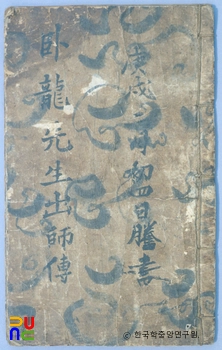 庚戌二月初四日謄書
臥龍先生出師傳
PUNC
© 한국학중앙연구원